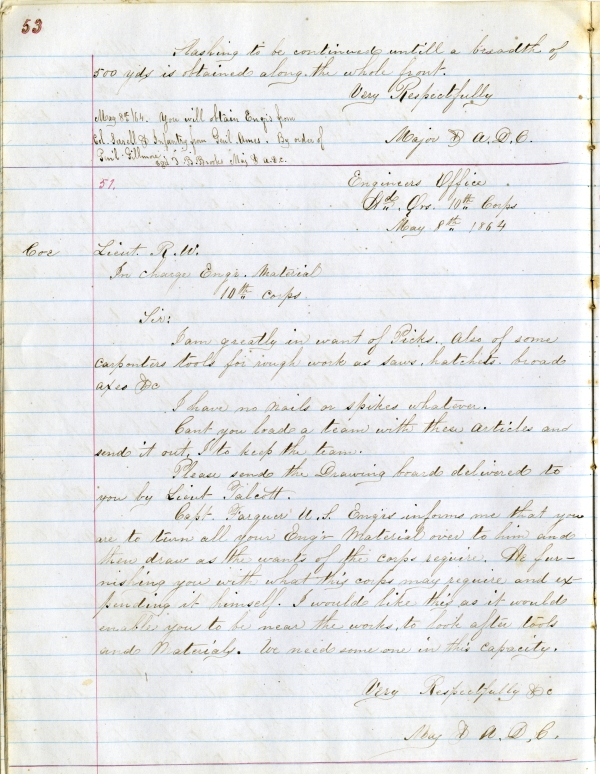 53
Slashing to be continued untill a breadth of
500 yds is obtained along the whole front.
Very Respectfully
Major & A. D. C.
May 8th /64. You will obtain Eng'rs from
Col. Serrell & Infantry from Genl. Ames. By order of
Genl. Gillmore
T. B. Brooks Maj & A.D.C.
51.
Engineers Office
Hd. Qrs. 10th Corps
May 8th 1864
Coe
Lieut. R. W.
In charge Eng'r. Material
10th corps
Sir:
I am greatly in want of Picks. Also of some
carpenters tools for rough work as saws, hatchets, broad
axes &c
I have no nails or spikes whatever.
Cant you load a team with these articles and
send it out, I to keep the team.
Please send the Drawing board delivered to
you by Lieut Talcott.
Capt. Farquer U. S. Eng'rs informs me that you
are to turn all your Eng'r Material over to him and
then draw as the wants of the corps require. He fur-
nishing you with what this corps may require and ex-
pending it himself. I would like this as it would
enables you to be near the works, to look after tools
and Materials. We need some one in this capacity.
Very Respectfully &c
Maj & A. D. C.